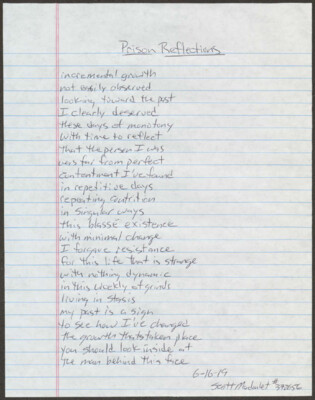 Prison Reflections
incremental growth
not easily observed
looking toward the past
I clearly deserved
these days of monotony
with time to reflect
that the person I was
was far from perfect
contentment I've found
in repetitive days
repeating contrition
in singular ways
this blassé existence
with minimal change
I forgive resistance
for this life that is strange
with nothing dynamic
in this weekly
living in stasis
my past is a sign
to see how I've changed
the growth thats taken place
you should look inside at
the man behind this face
6-16-19
Scott